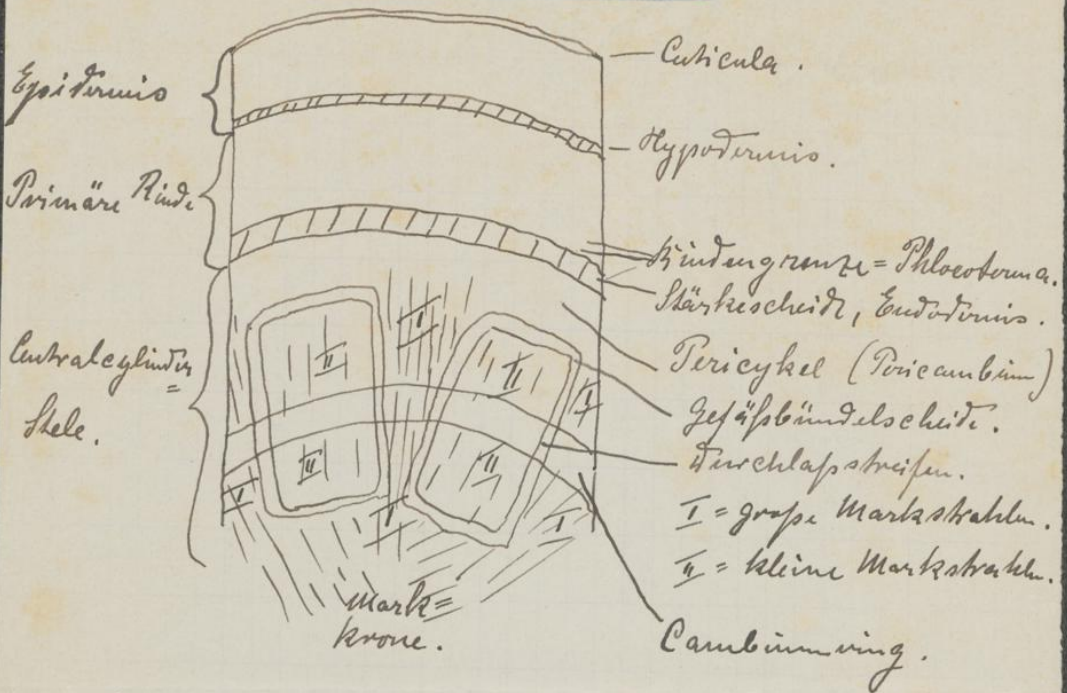 Epidermis
Primäre Rinde
Centralcylinder
=
Stele.
Cuticula.
Hypodermis.
Rindengrenze = Phloeoterma.
Stärkescheide, Endodermis.
Pericykel (Pericambium)
Gefäßbündelscheide.
Durchlaßstreifen.
I = große Markstrahlen.
II = kleine Markstrahlen.
Cambiumring.
I
II
II
I
II
II
I
I
I
Mark=
krone.